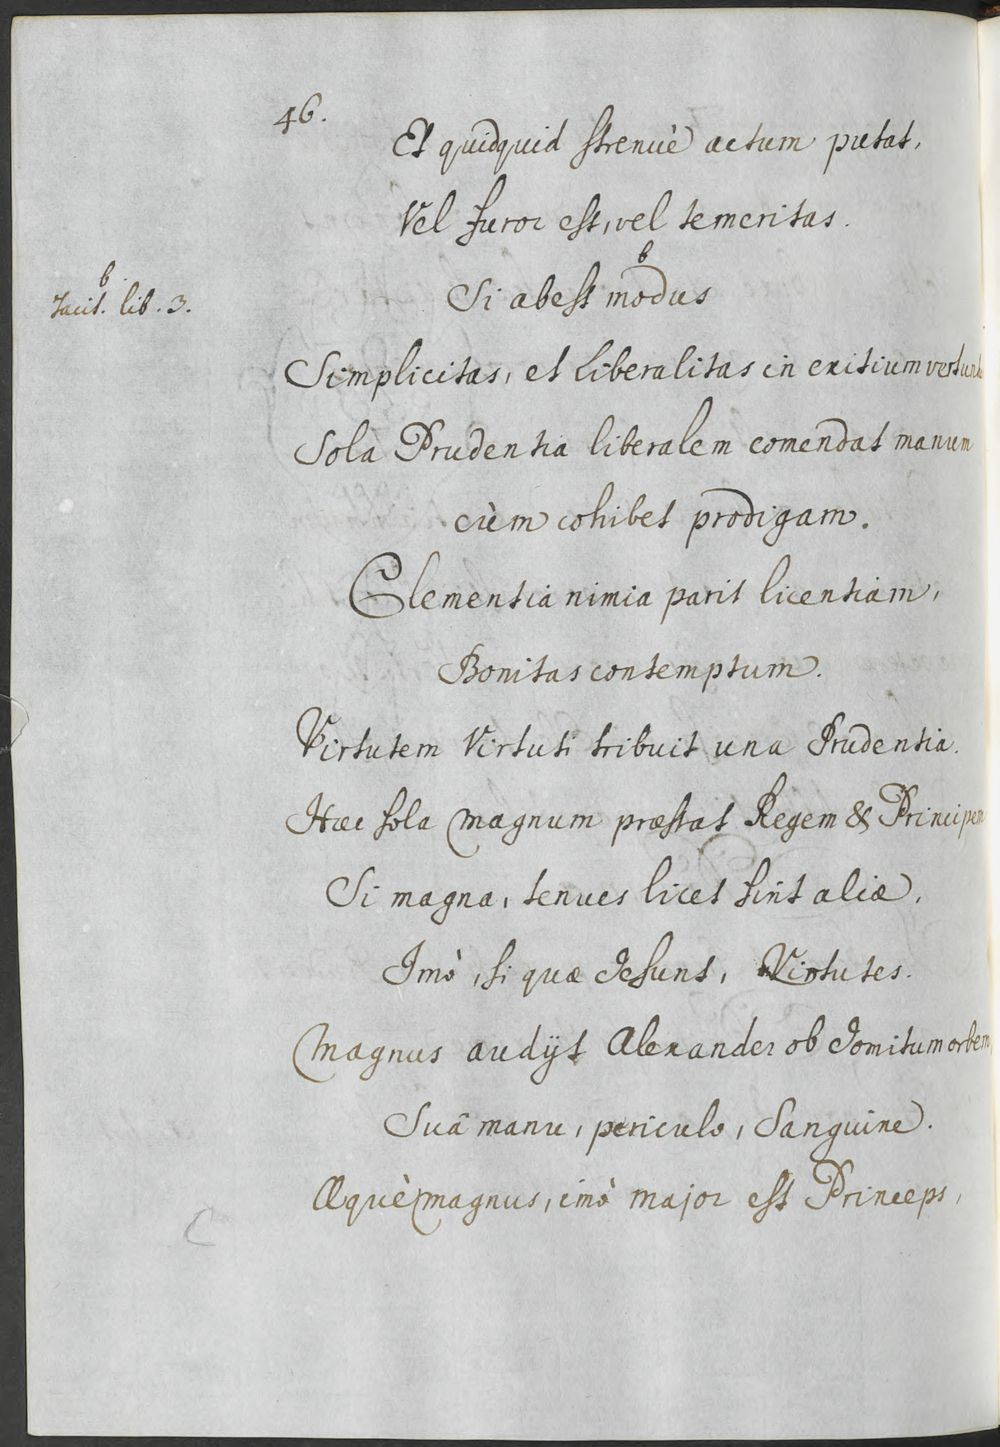 46.
Et quidquid strenuè actum putat,
Vel furor est, vel temeritas.
b
Tacit. lib. 3.
b
Si abest modus
Simplicitas, et Liberalitas in exitium vertunt
Sola Prudentia liberalem comendat manum
cùm cohibet prodigam.
Clementia nimia parit licentiam,
Bonitas contemptum.
Virtutem Virtuti tribuit una Prudentia.
Hæc sola magnum præstat Regem & Principem
Si magna, tenues licet sint aliæ,
Imò, si quæ desunt, Virtutes.
Magnus audijt Alexander ob domitum orbem
Suâ manu, periculo, Sanguine.
Æquè magnus, imò major est Princeps,